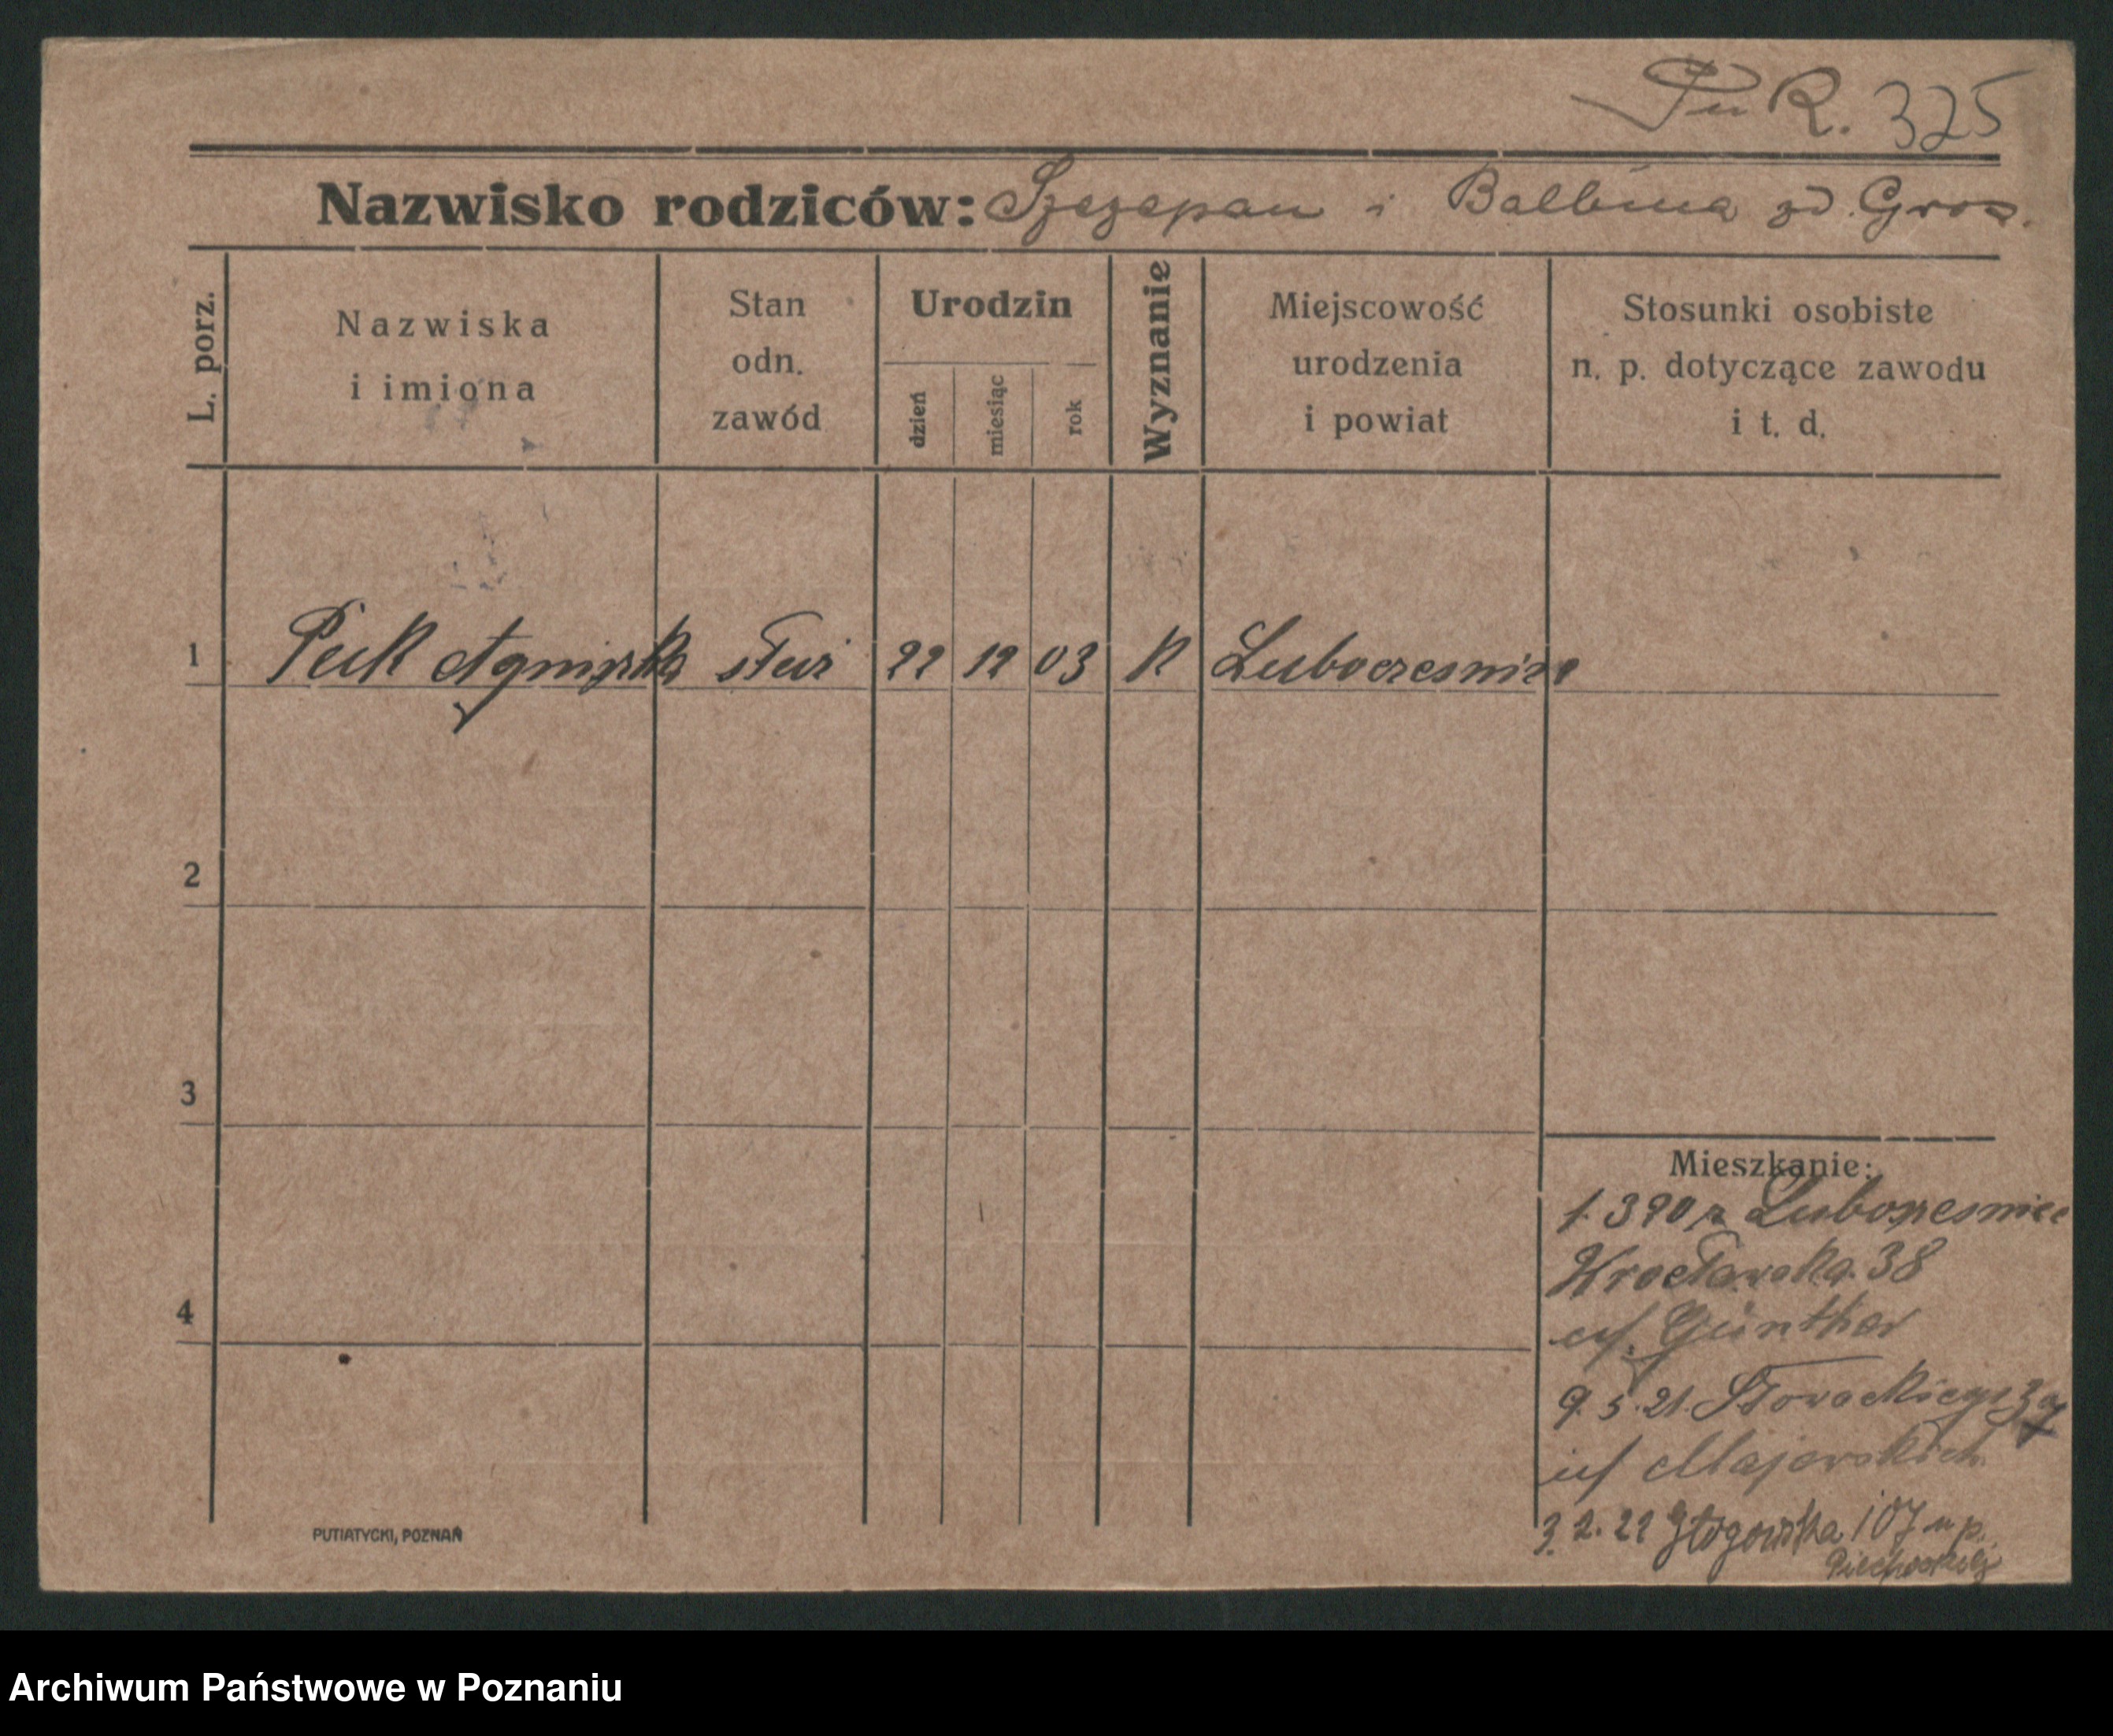 R. 325
Nazwisko rodziców: Szczepan i Balbina zd. Gros.
L. porz.
Nazwiska
i imiona
Stan
odn.
zawód
Urodzin
dzień
miesiąc
rok
Wyznanie
Miejscowość
urodzenia
i powiat
Stosunki osobiste
n. p. dotyczące zawodu
i t. d.
1 Peck Agnieszka służ 22 12 03 K Lubocześnica
2
3
4
Mieszkanie:
z Lubocześnice
Wrocławska 38
Günther
9.5.21. Słowackiego
Majewskich
3.2.22 Głogowska 107 u p.
Piechockiej
PUTIATYCKI, POZNAŃ
Archiwum Państwowe w Poznaniu